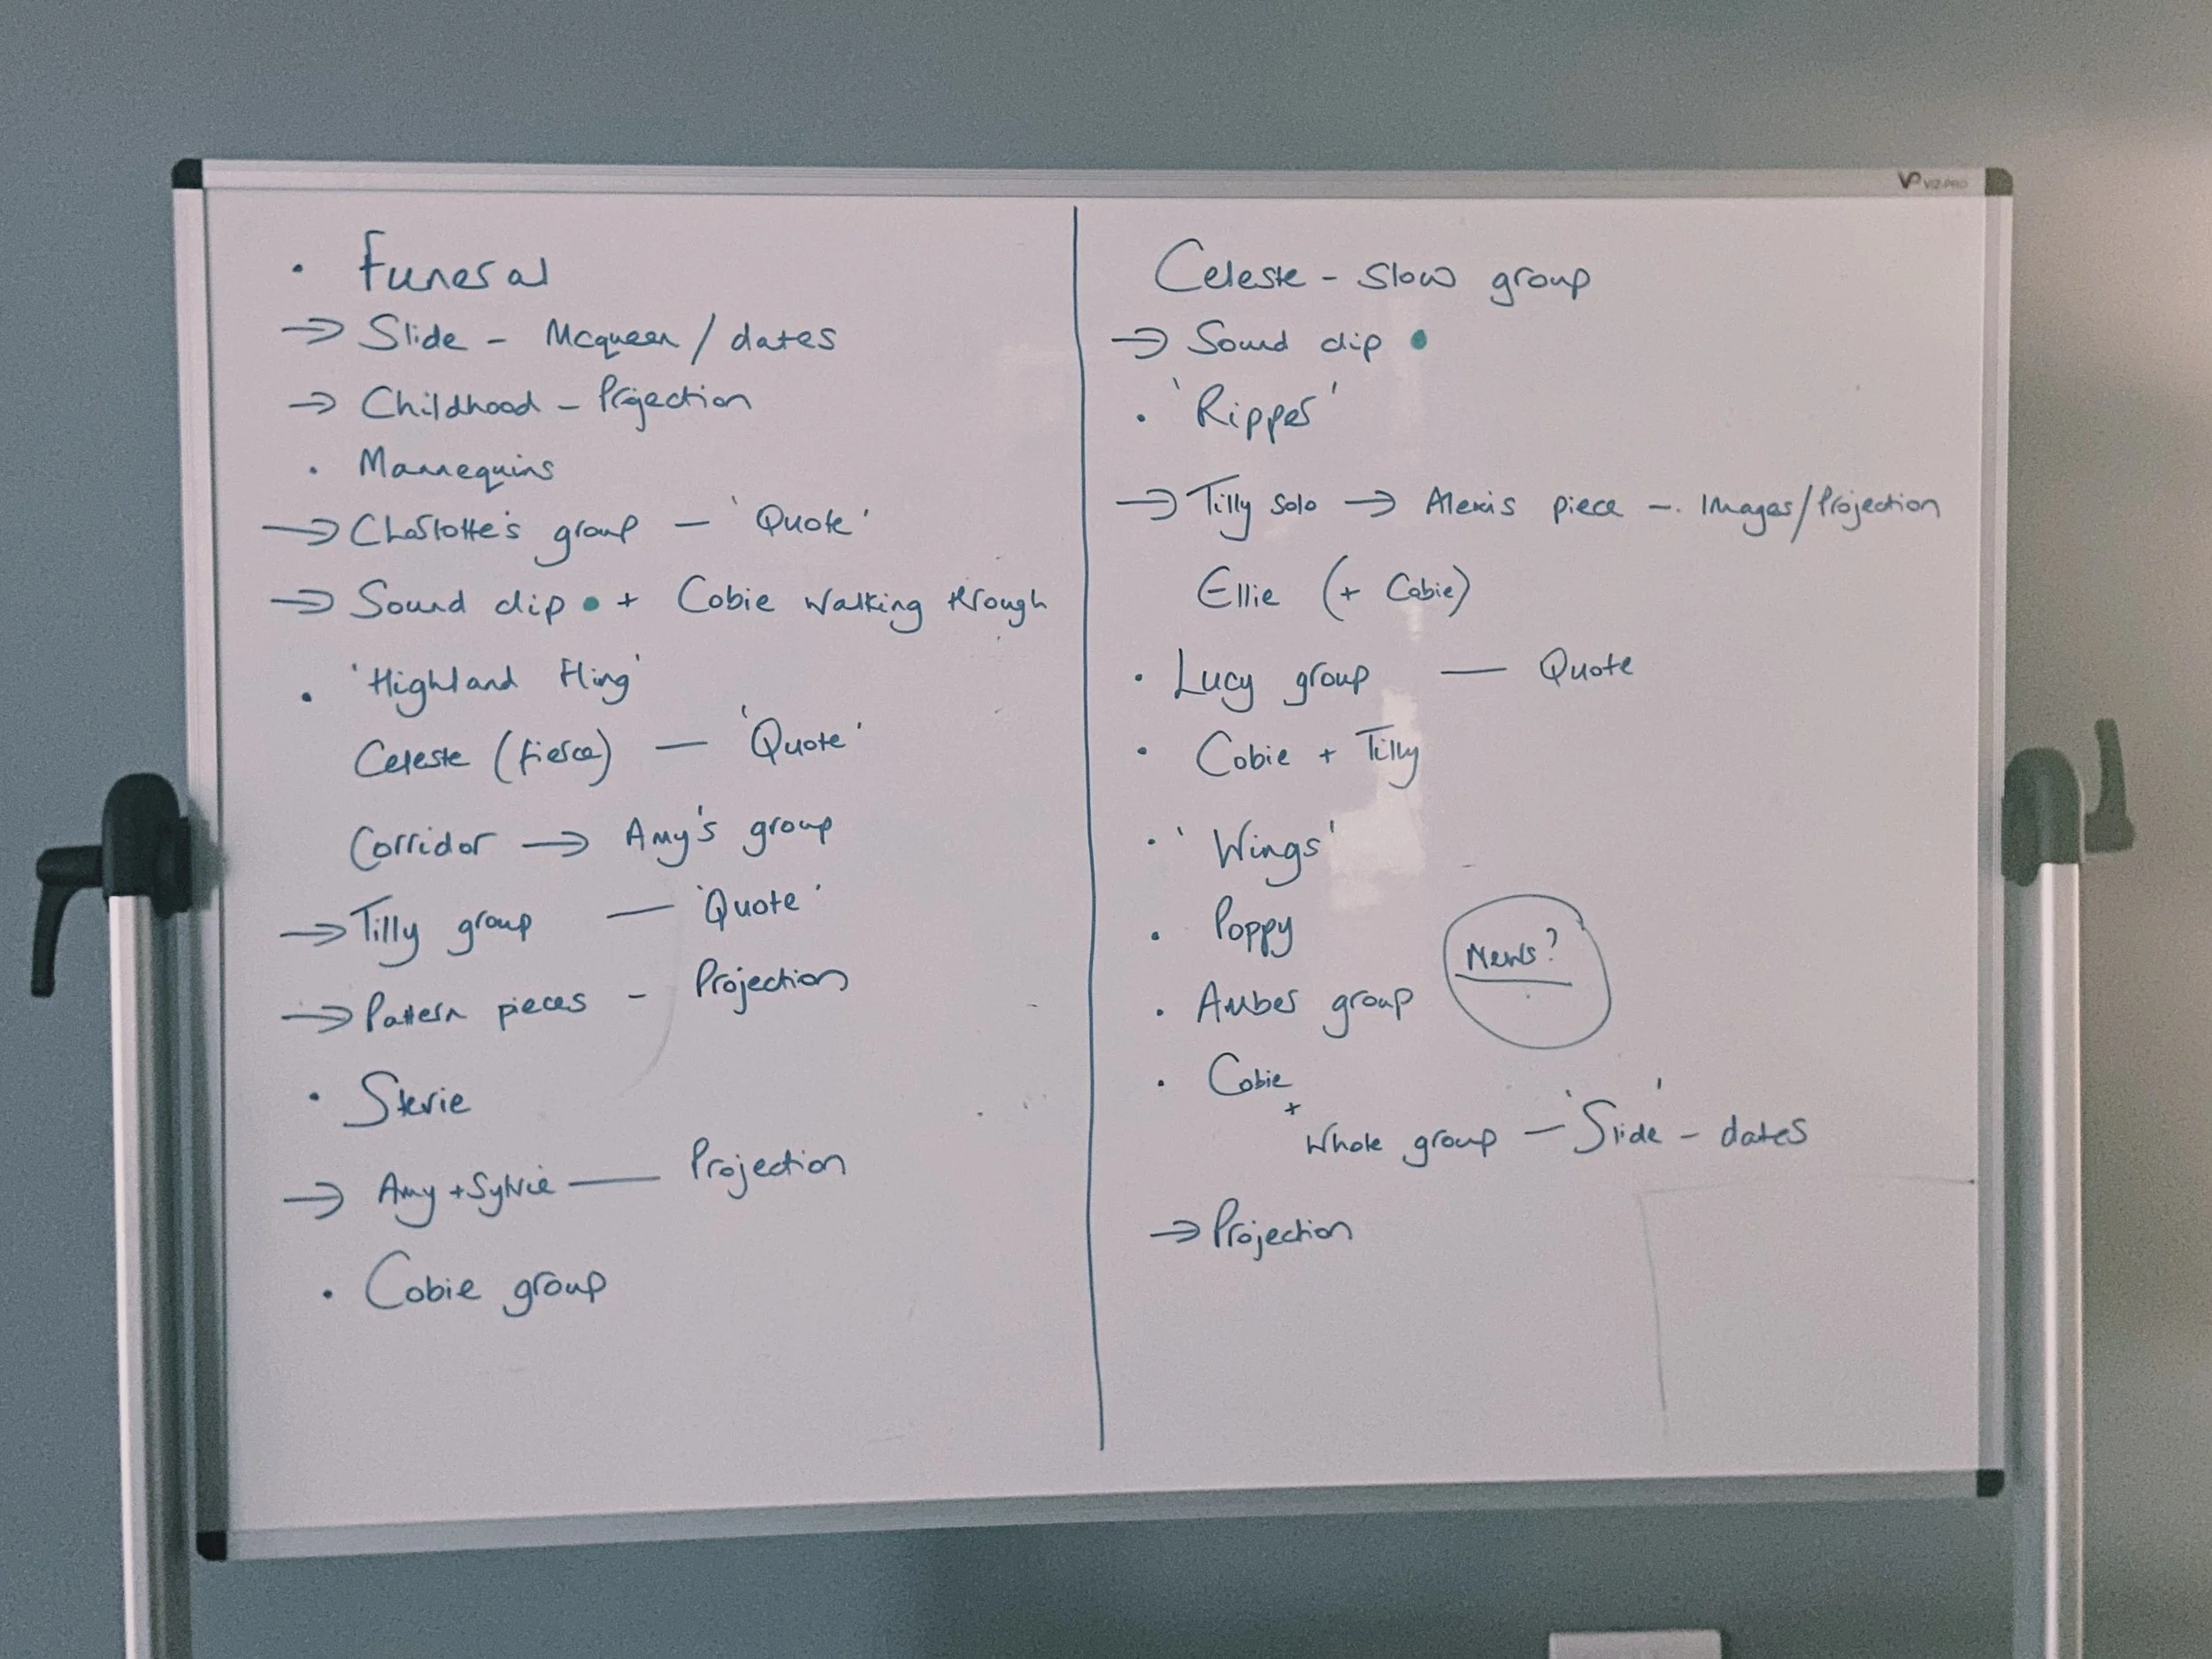 • Funeral
→ Slide - Mcqueen / dates
→ Childhood - Projection
• Mannequins
→ Charlotte's group — 'Quote'
→ Sound clip • + Cobie walking through
• 'Highland Fling'
Celeste (fierce) — 'Quote'
Corridor → Amy's group
→ Tilly group — 'Quote'
→ Pattern pieces - Projection
• Stevie
→ Amy + Sylvie — Projection
• Cobie group
Celeste - Slow group
→ Sound clip •
• 'Ripper'
→ Tilly solo → Alexis piece - Images/Projection
Ellie (+ Cobie)
• Lucy group — Quote
• Cobie + Tilly
• 'Wings'
• Poppy
News?
• Amber group
• Cobie
+
Whole group — 'Slide' - dates
→ Projection
VIZ-PRO